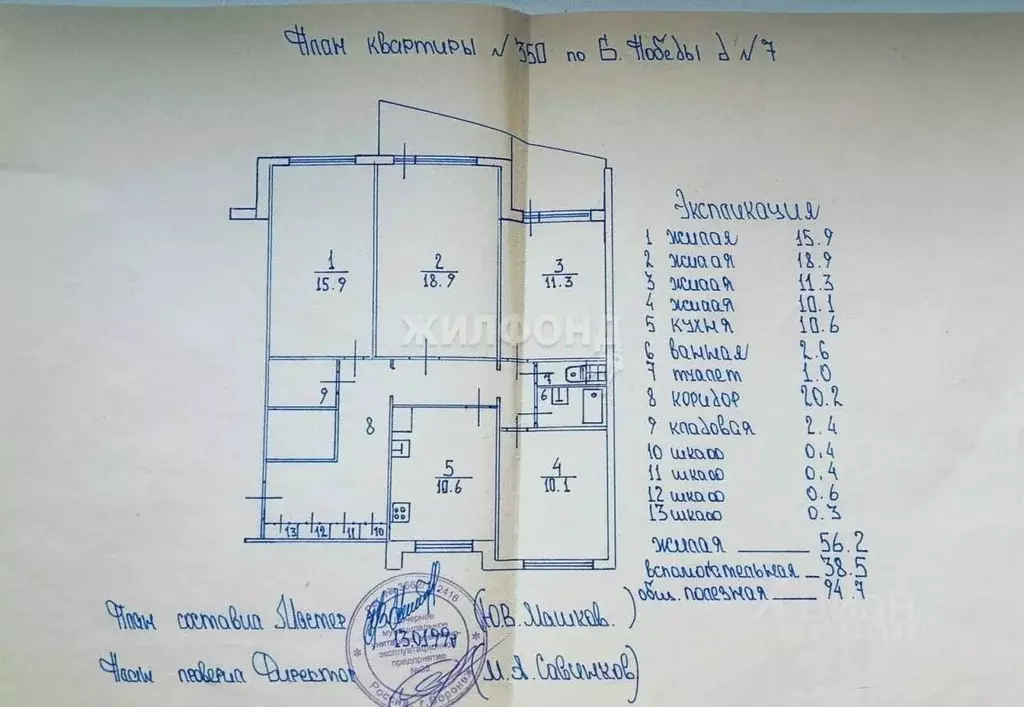 План квартиры №350 по Б. Победы д №7
1
15.9
2
18.9
3
11.3
ЖИЛФОНД
9
8
7
6
5
10.6
4
10.1
13 12 11 10
Экспликация
1 жилая 15.9
2 жилая 18.9
3 жилая 11.3
4 жилая 10.1
5 кухня 10.6
6 ванная 2.6
7 туалет 1.0
8 коридор 20.2
9 кладовая 2.4
10 шкаф 0.4
11 шкаф 0.4
12 шкаф 0.6
13 шкаф 0.3
жилая 56.2
вспомогательная 38.5
общ. полезная 94.7
План составил Мастер (Ю.В. Машков.)
План проверил Директор (М.А. Савинков)
предприятие